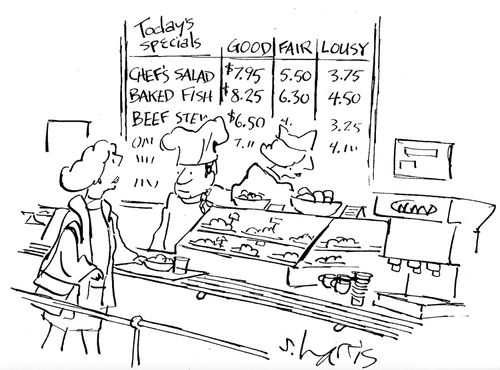 Today's
specials GOOD FAIR LOUSY
CHEF'S SALAD $7.95 5.50 3.75
BAKED FISH $8.25 6.30 4.50
BEEF STEW $6.50 3.25
s. harris